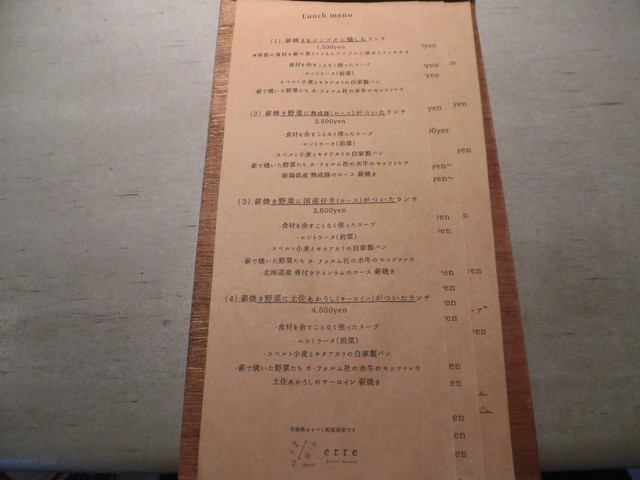 Lunch menu
(1).薪焼きをシンプルに愉しむランチ
1,500yen
食材を余すことなく使ったスープ
・エントラータ(前菜)
スペルト小麦とキタアカリの自家製パン
薪で焼いた野菜たち カ・フォルム社の水牛のモッツァレラ
(2).薪焼き野菜に熟成豚(ロース)がついたランチ
2,800yen
・食材を余すことなく使ったスープ
・エントラータ(前菜)
・スペルト小麦とキタアカリの自家製パン
・薪で焼いた野菜たち カ・フォルム社の水牛のモッツァレラ
新潟県産 熟成豚のロース 薪焼き
(3).薪焼き野菜に国産仔羊(ロース)がついたランチ
3,800yen
・食材を余すことなく使ったスープ
・エントラータ(前菜)
・スペルト小麦とキタアカリの自家製パン
・薪で焼いた野菜たち カ・フォルム社の水牛のモッツァレラ
・北海道産 骨付きラムのロース 薪焼き
(4).薪焼き野菜に土佐あかうし(サーロイン)がついたランチ
4,500yen
・食材を余すことなく使ったスープ
・エントラータ(前菜)
・スペルト小麦とキタアカリの自家製パン
・薪で焼いた野菜たち カ・フォルム社の水牛のモッツァレラ
土佐あかうしのサーロイン 薪焼き
erre